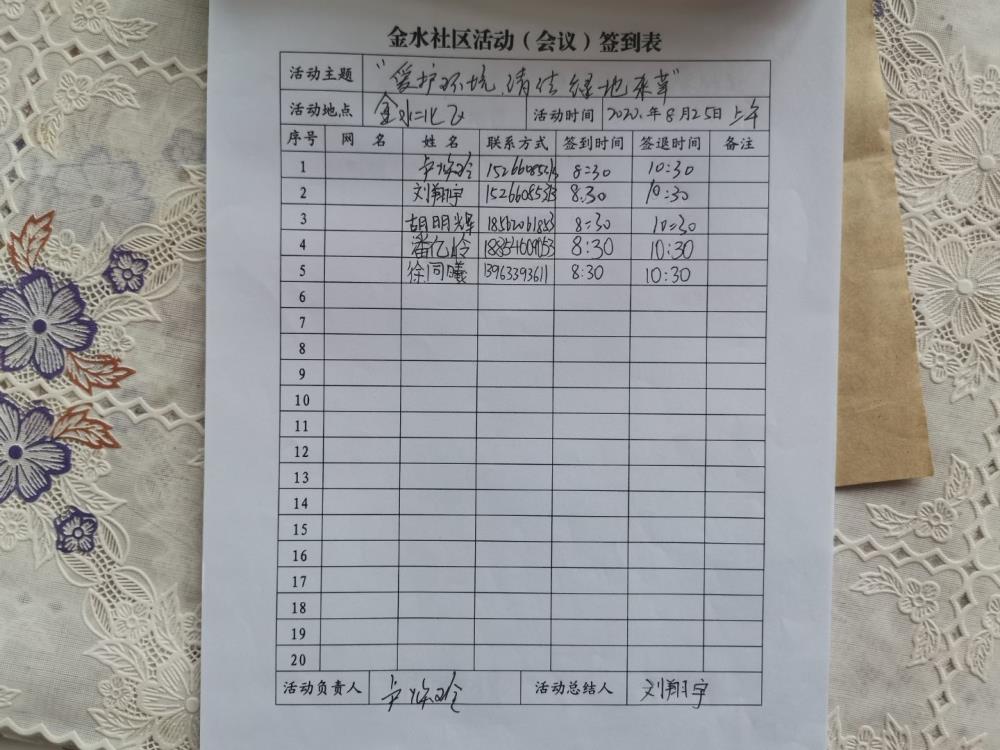 金水社区活动（会议）签到表
活动主题 "爱护环境,清洁绿地杂草"
活动地点 金水北区 活动时间 2020.年8月25日上午
序号 网名 姓名 联系方式 签到时间 签退时间 备注
1 8:30 10:30
2 刘翔宇 8:30 10:30
3 胡明辉 18562061853 8:30 10:30
4 8:30 10:30
5 徐同曦 13963393611 8:30 10:30
6
7
8
9
10
11
12
13
14
15
16
17
18
19
20
活动负责人 活动总结人 刘翔宇